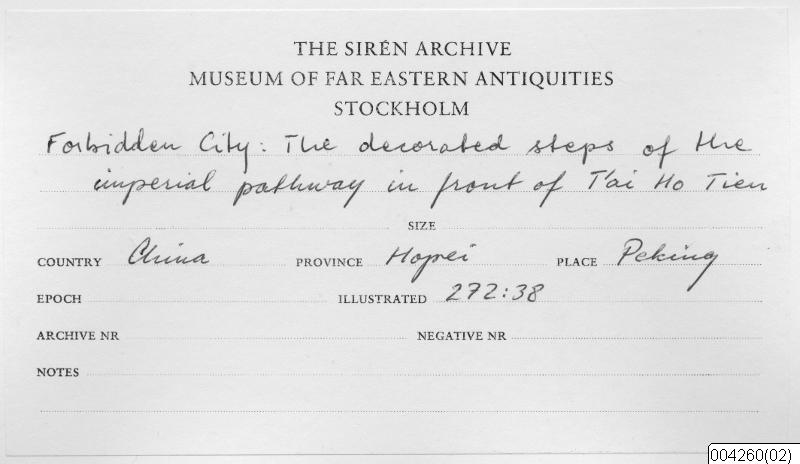 THE SIRÉN ARCHIVE
MUSEUM OF FAR EASTERN ANTIQUITIES
STOCKHOLM
Forbidden City: The decorated steps of the
imperial pathway in front of T'ai Ho Tien
SIZE
COUNTRY China PROVINCE Hopei PLACE Peking
EPOCH ILLUSTRATED 272:38
ARCHIVE NR NEGATIVE NR
NOTES
004260(02)